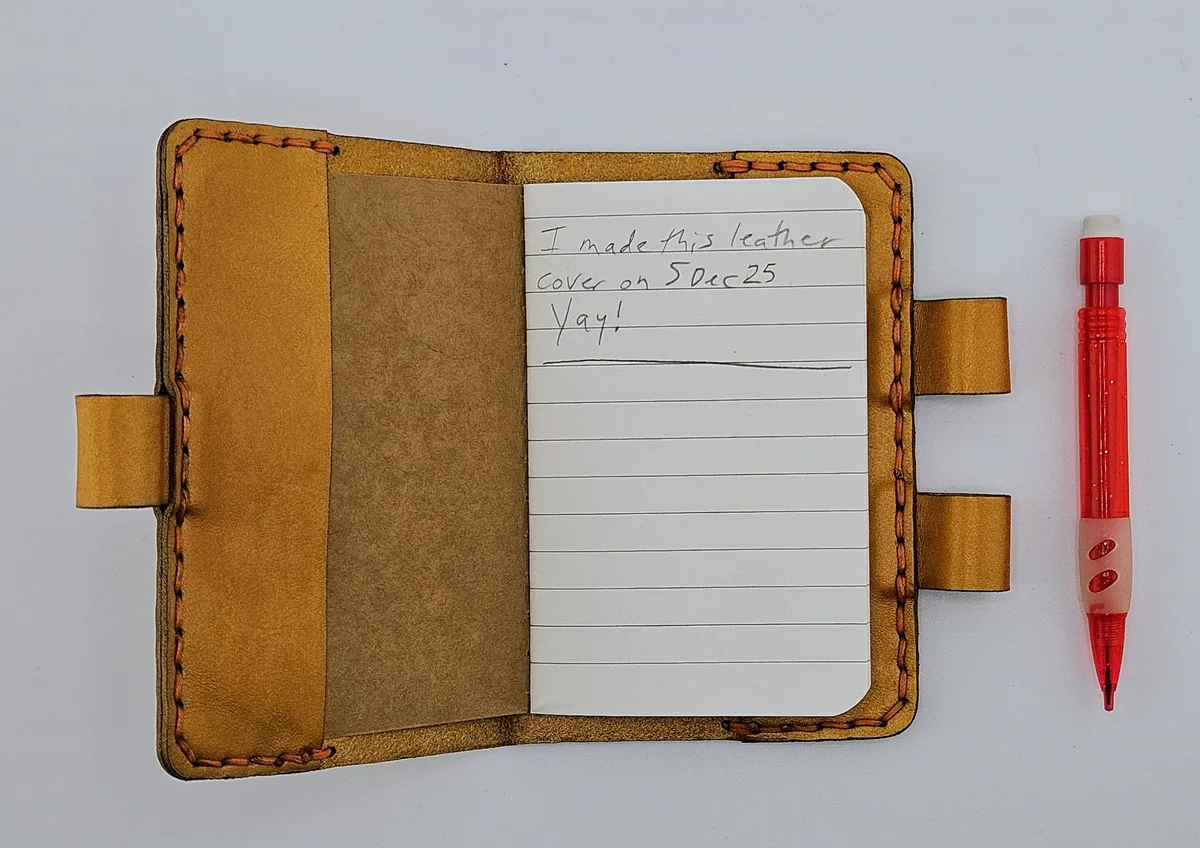 I made this leather
cover on 5 Dec 25
Yay!